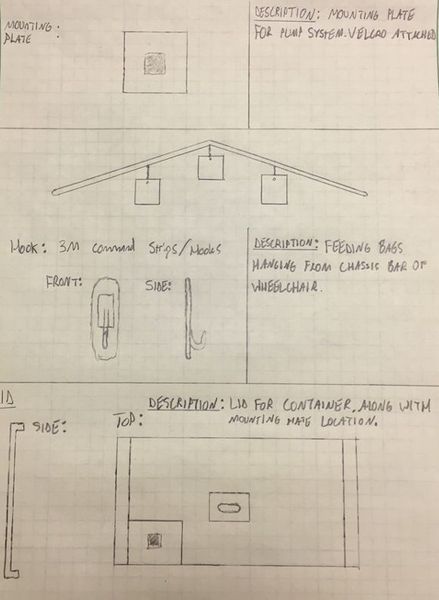 MOUNTING
PLATE :
DESCRIPTION: MOUNTING PLATE
FOR PUMP SYSTEM. VELCRO ATTACHED
HOOK: 3M COMMAND STRIPS/HOOKS
FRONT:
SIDE:
DESCRIPTION: FEEDING BAGS
HANGING FROM CHASSIS BAR OF
WHEELCHAIR.
ID
SIDE:
TOP:
DESCRIPTION: LID FOR CONTAINER, ALONG WITH
MOUNTING PLATE LOCATION.